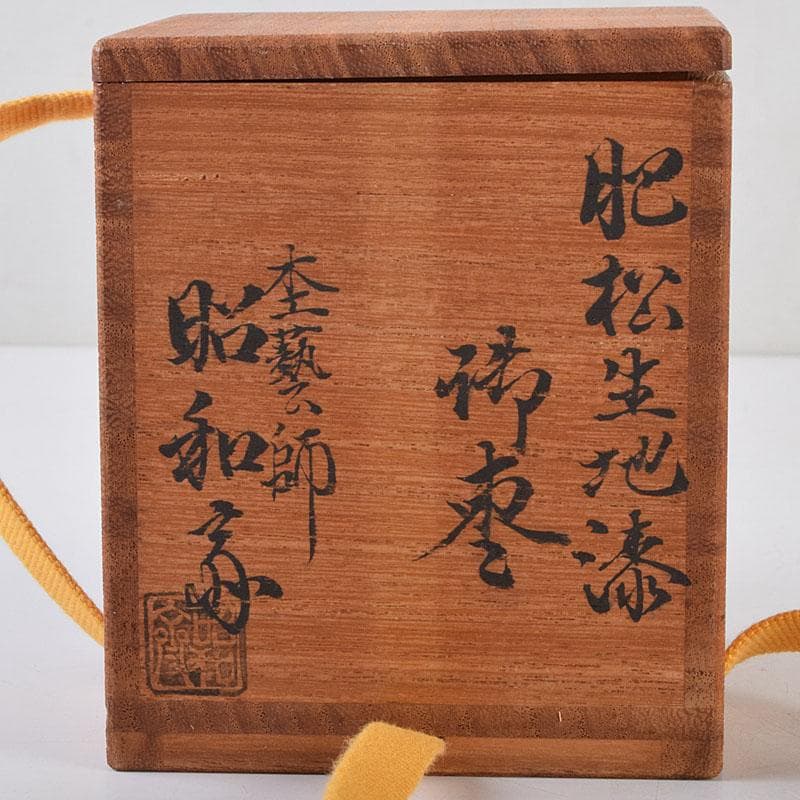 肥松生地漆
御棗
木工藝師
昭和斎